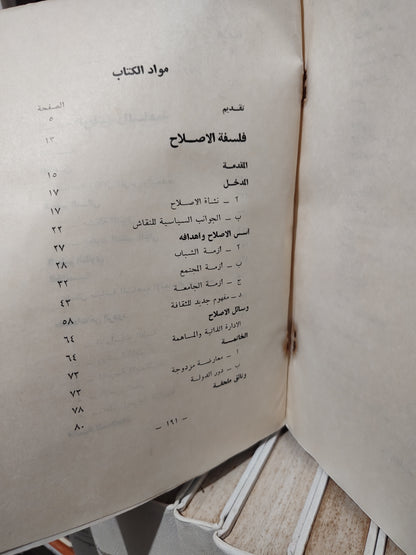 مواد الكتاب
الصفحة
تقديم ٥
فلسفة الاصلاح ١٣
المقدمة ١٥
المدخل ١٧
٢ ــ نشاة الاصلاح ١٧
ب ــ الجوانب السياسية للنقاش ٢٢
اسس الاصلاح واهدافه ٢٧
٢ ــ ازمة الشباب ٢٨
ب ــ ازمة المجتمع ٣٢
ج ــ ازمة الجامعة ٤٣
د ــ مفهوم جديد للثقافة ٥٨
وسائل الاصلاح ٦٤
الادارة الذاتية والمساهمة ٦٤
الخاتمة ٧٣
أ ــ معارضة مزدوجة ٧٣
ب ــ دور الدولة ٧٨
وثائق ملحقة ٨٠
ــ ١٩١ ــ